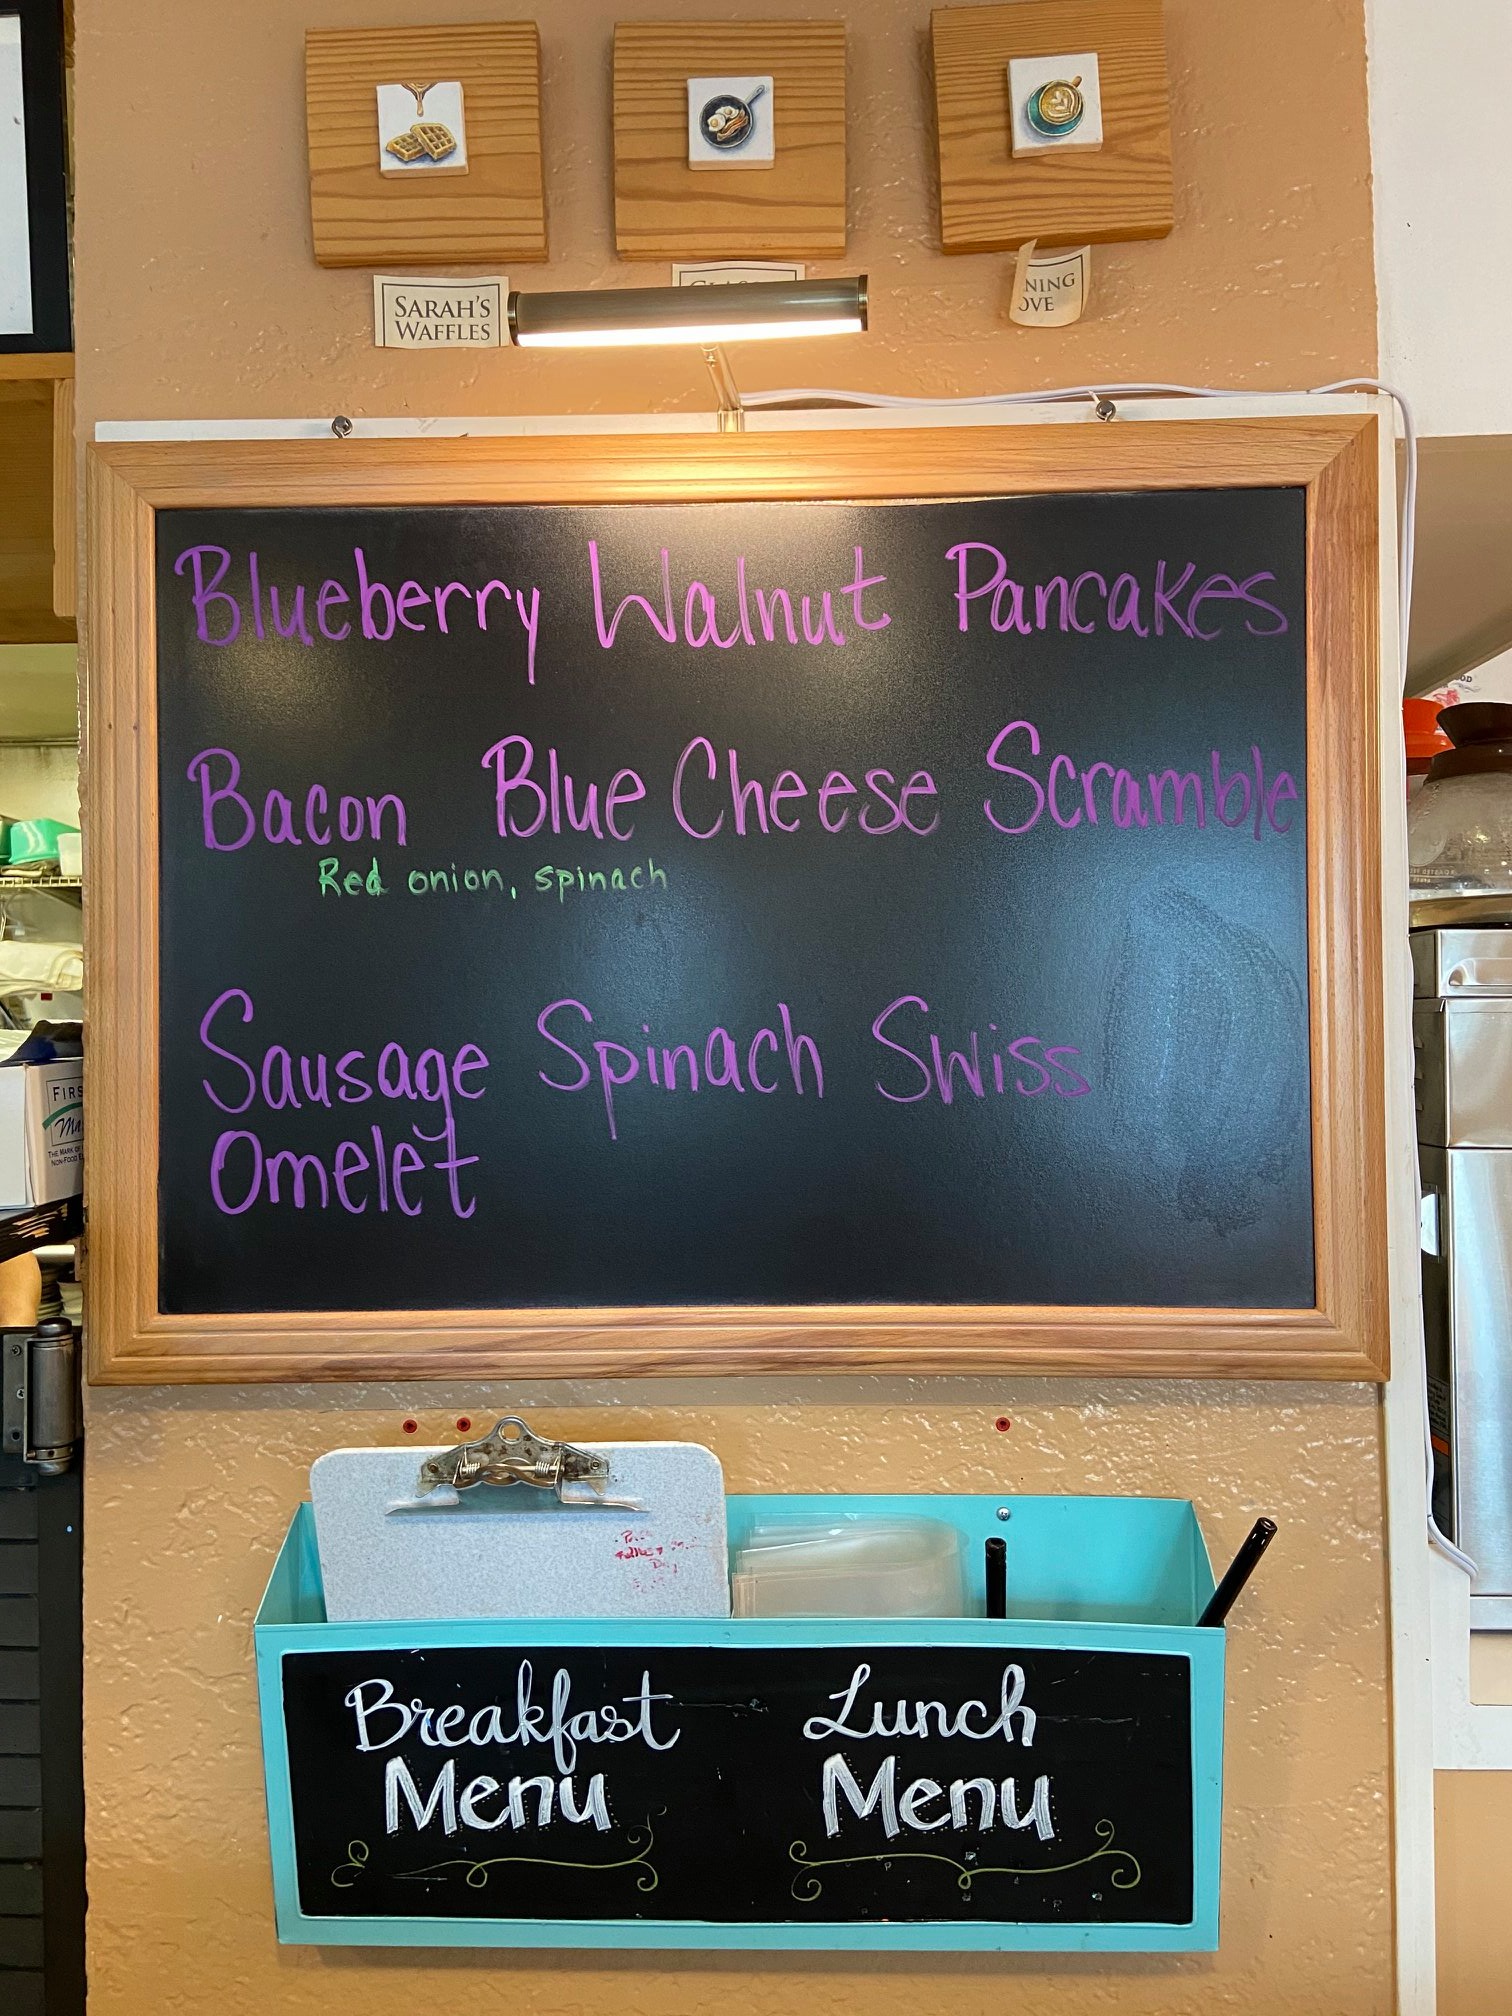 SARAH'S
WAFFLES
NING
OVE
Blueberry Walnut Pancakes
Bacon Blue Cheese Scramble
Red onion, spinach
Sausage Spinach Swiss
Omelet
FIRS
THE MARK OF
NON-FOOD
Day
Breakfast
Menu
Lunch
Menu